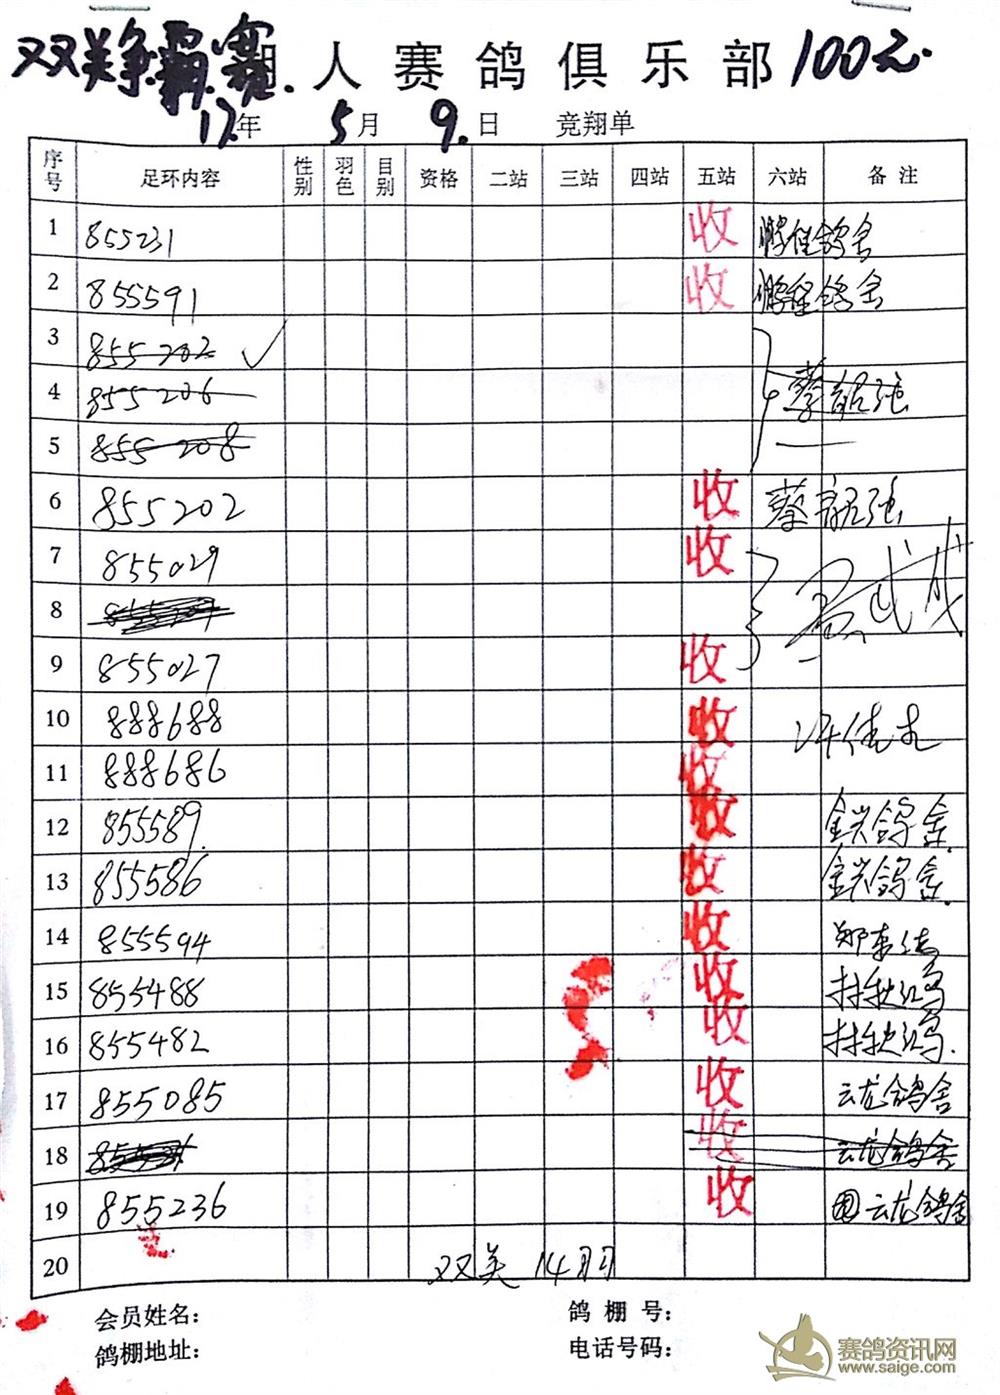 双关争霸赛 人赛鸽俱乐部 100元.
17年 5月 9.日 竞翔单
序号 足环内容 性别 羽色 目别 资格 二站 三站 四站 五站 六站 备注
1 855231 收 鸽舍
2 855591 收 鸽舍
3 855202 ✓
4 855206 蔡
5 855208
6 855202 收 蔡
7 855029 收
8
9 855027 收
10 888688 收
11 888686 收
12 855589. 收 鸽舍
13 855586 收 鸽舍
14 855594 收 郑
15 855488 收
16 855482 收
17 855085 收 云龙鸽舍
18 收 云龙鸽舍
19 855236 收 云龙鸽舍
20 双关 14羽
会员姓名: 鸽棚号:
鸽棚地址: 电话号码:
赛鸽资讯网
www.saige.com